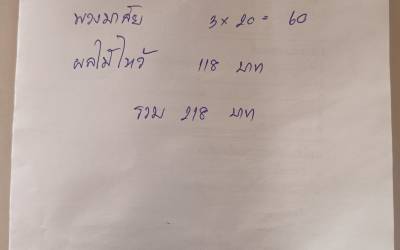 พวงมาลัย 3 x 20 = 60
ผลไม้ไหว้ 118 บาท
รวม 218 บาท